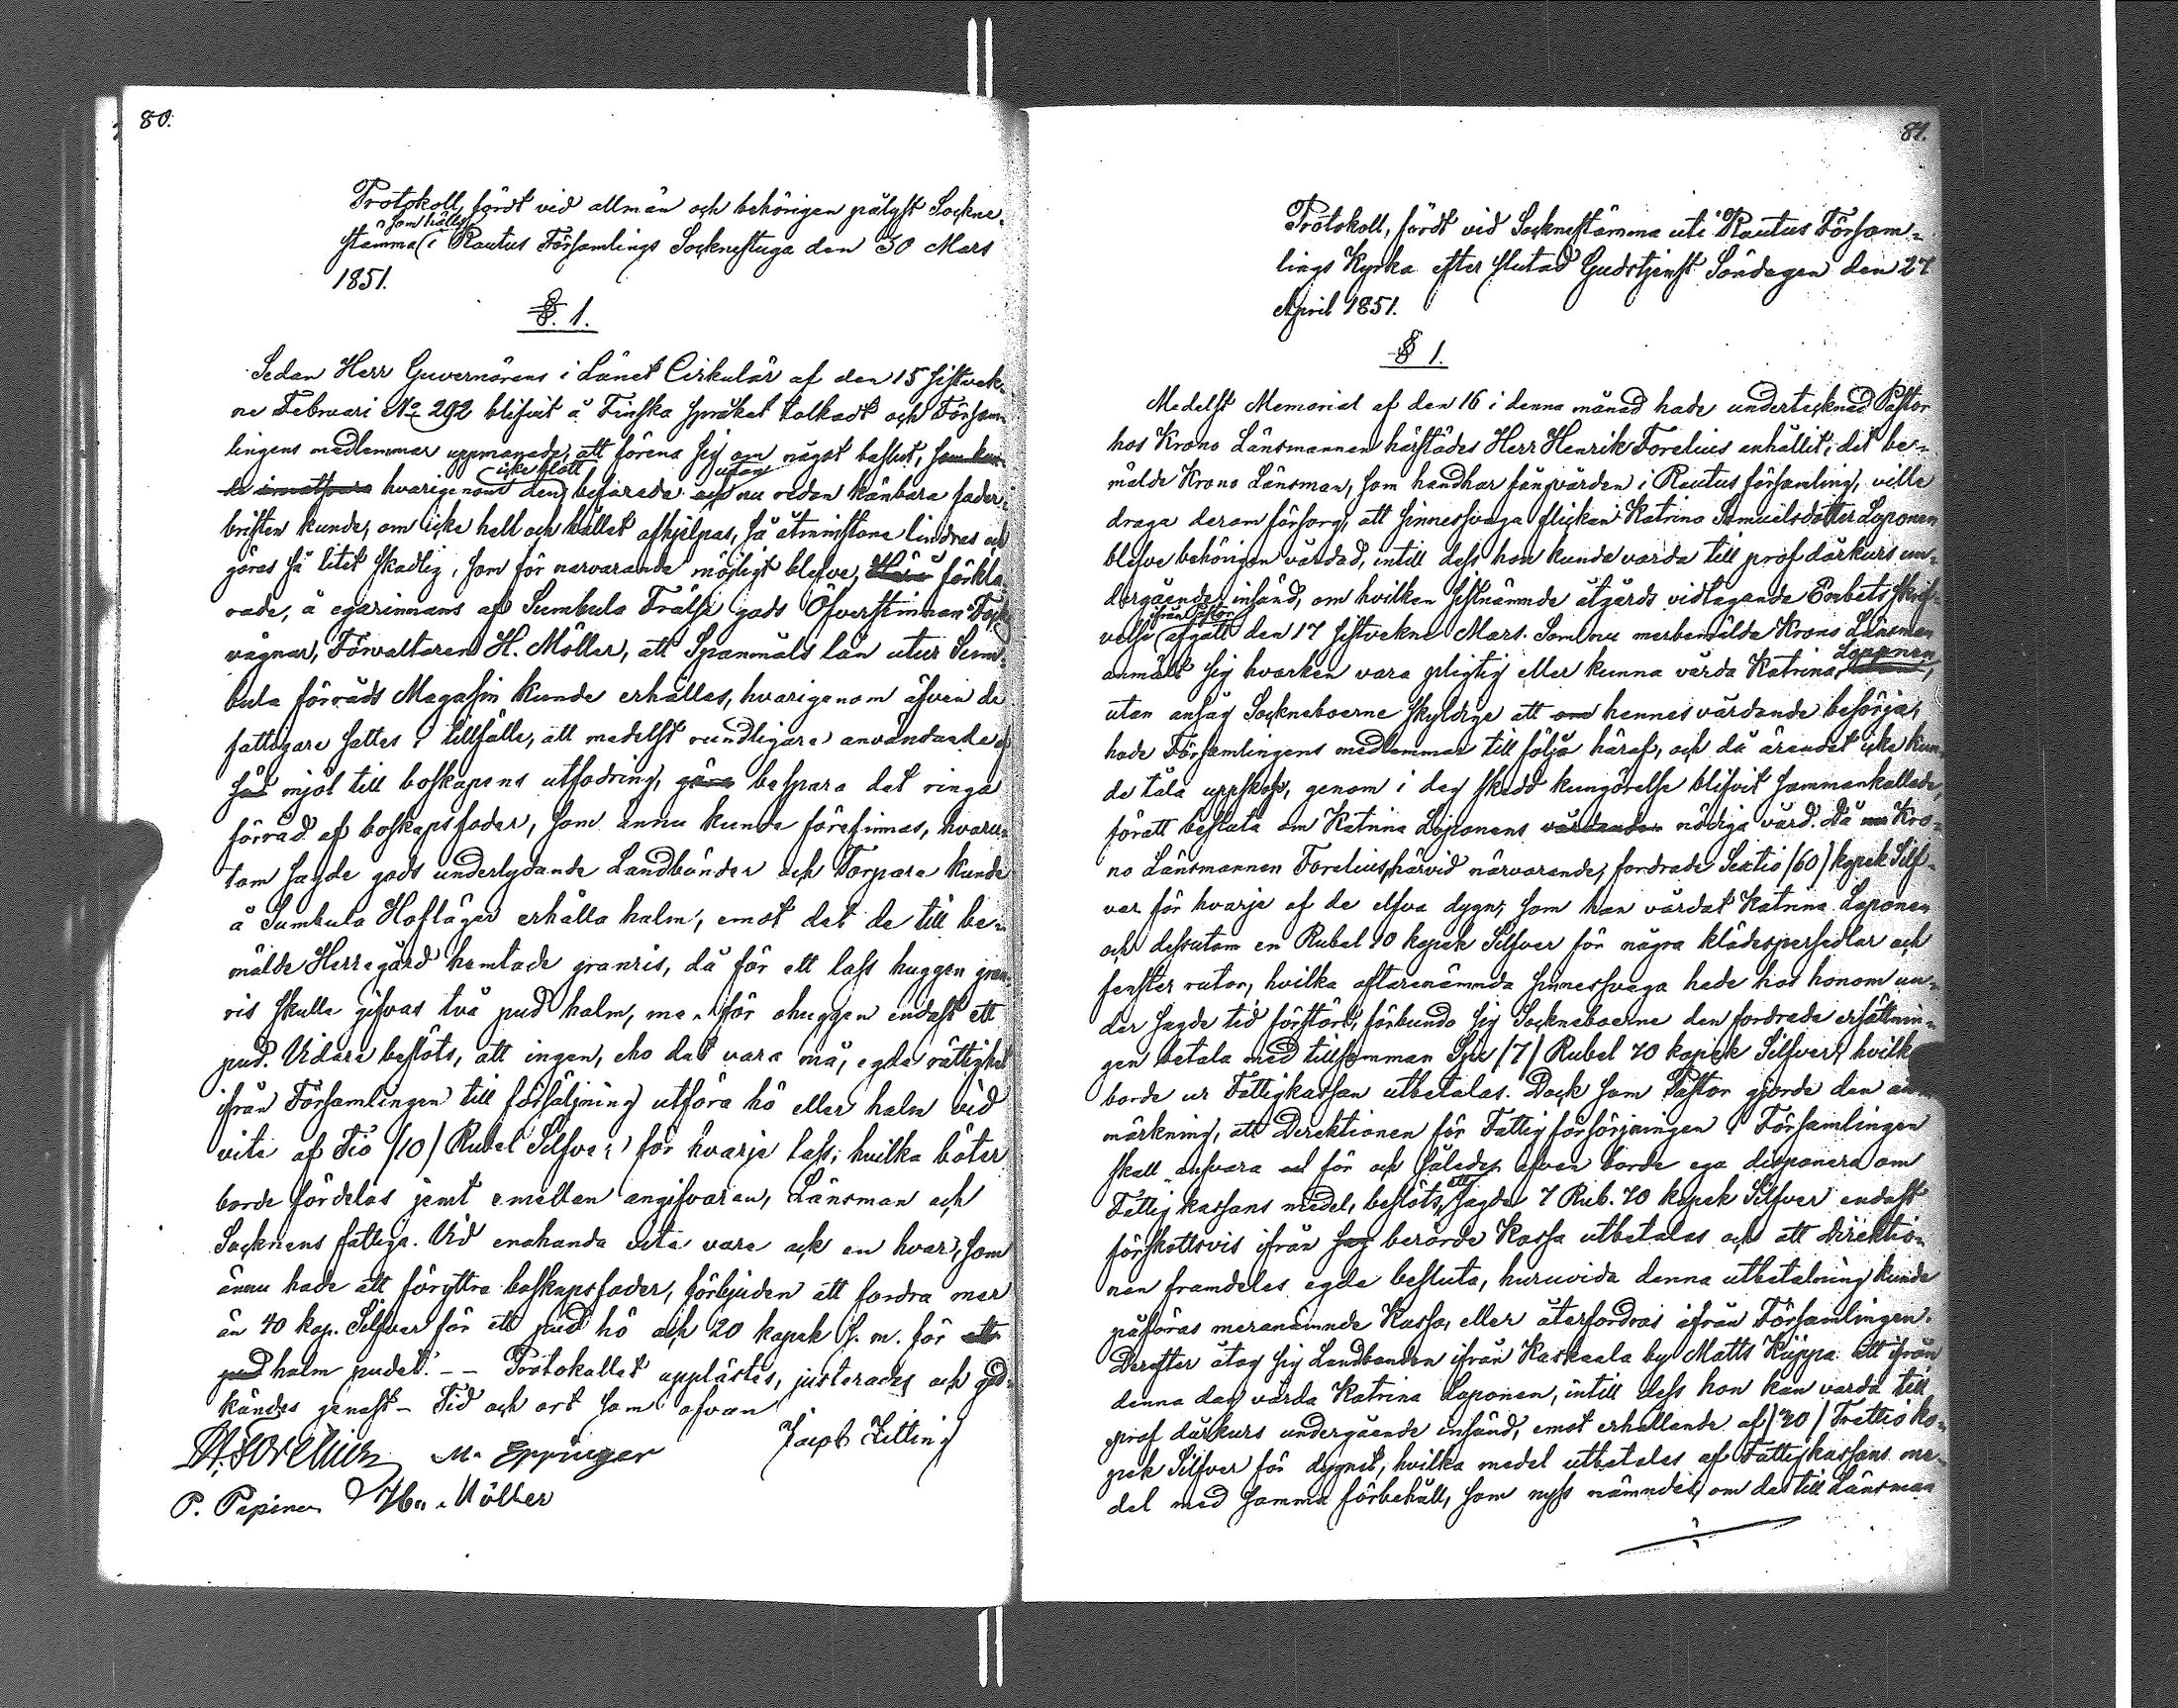 80.
Protokoll, fördt vid allmän och behörigen pålyst Sockne-
som hålls
stämma i Rautus Församlings Socknestuga den 30 Mars
1851.
§. 1.
Sedan Herr Guvernörens i Länet Cirkulär af den 15 sistvek-
ne Februari No 292 blifvit å Finska språket tolkadt och Försam-
lingens medlemmar uppmanade, att förena sig om något beslut, som kun-
icke blott utan
de hvarigenom den befarade och nu redan känbara foder-
bristen kunde, om icke helt och hållet afhjelpas, så åtminstone lindras och
göras så litet skadlig, som för närvarande möjligt blefve, förkla-
rade, å egarinnans af Sumbula Frälse gods Öfverstinnan
vägnar, Förvaltaren H. Möller, att Spanmåls lån utur Sum-
bula förråds Magasin kunde erhållas, hvarigenom äfven de
fattigare sattes i tillfälle, att medelst rundligare användande af
mjöl till boskapens utfodring, bespara det ringa
förråd af boskapsfoder, som ännu kunde förefinnas, hvaru-
tom sagde gods underlydande Landbönder och Torpare kunde
å Sumbula Hofläger erhålla halm, emot det de till be-
mälde Herregård hemtade granris, då för ett lass huggen gran-
ris skulle gifvas två pud halm, men för ohuggen endast ett
pud. Vidare beslöts, att ingen, eho det vara må, egde rättighet
ifrån Församlingen till försäljning utföra hö eller halm vid
vite af Tio /10/ Rubel Silfver för hvarje lass; hvilka böter
borde fördelas jemt emellan angifvaren, Länsman och
Socknens fattiga. Vid enahanda vite vare ock en hvar, som
ännu hade att föryttra boskapsfoder, förbjuden att fordra mer
än 40 kop. Silfver för ett pud hö och 20 kopek s. m. för ett
pud halm pudet. -- Protokollet upplästes, justerades och god-
kändes genast - Tid och ort som ofvan
H. Forelius M. Eppinger Jacob Zitting
P. Pepinen Möller
81.
Protokoll, fördt vid Socknestämma uti Rautus Försam-
lings Kyrka efter slutad Gudstjenst Söndagen den 27
April 1851.
§ 1.
Medelst Memorial af den 16 i denna månad hade undertecknad Pastor
hos Krono Länsmannen härstädes Herr Henrik Forelius anhållit, det be-
mälde Krono Länsman, som handhar fångvården i Rautus församling, ville
draga derom försorg, att sinnessvaga flickan Katrina Samuelsdotter Loponen
blefve behörigen vårdad, intill dess hon kunde varda till prof dårkurs un-
dergående insänd, om hvilken sistnämnde åtgärds vidtagande Embets skrif-
ifrån Pastor
velse afgått den 17 sistvekne Mars. Som nu merbemälde Krono Länsman
Loponen
anmält sig hvarken vara pligtig eller kunna vårda Katrina,
utan ansåg Sockneboerne skyldige att om hennes vårdande besörja,
hade Församlingens medlemmar till följa häraf, och då ärendet icke kun-
de tåla uppskof, genom i dag skedd kungörelse blifvit sammankallade,
föratt besluta om Katrina Loponens vårdande nödiga vård. Då Kro-
no Länsmannen Forelius, härvid närvarande, fordrade Sextio /60/ kopek Silf-
ver för hvarje af de elfva dygn, som han vårdat Katrina Loponen
och dessutom en Rubel 10 kopek Silfver för några klädespersedlar och
fenster rutor, hvilka oftarenämnda sinnessvaga hade hos honom un-
der sagde tid förstört, förbundo sig Sockneboerne den fordrade ersättnin-
gen betala med tillsamman Sju /7/ Rubel 70 kopek Silfver, hvilk
borde ur Fattigkassan utbetalas. Dock som Pastor gjorde den an-
märkning, att Direktionen för Fattigförsörjningen i Församlingen
skall ansvara för och således äfven borde ega disponera om
att
Fattig kassans medel, beslöts, sagde 7 Rub. 70 kopek Silfver endast
förskottsvis ifrån berörde Kassa utbetalas och att Direktio-
nen framdeles egde besluta, huruvida denna utbetalning kunde
påföras meranämnde Kassa, eller återfordras ifrån Församlingen.
Derefter åtog sig Landbonden ifrån Kaskaala by Matts Kiippa att ifrån
denna dag vårda Katrina Loponen, intill dess hon kan varda till
prof dårkurs undergående insänd, emot erhållande af /30/ Trettio ko-
pek Silfver för dygnet, hvilka medel utbetalas af Fattigkassans me-
del med samma förbehåll, som nyss nämndes om de till Länsman